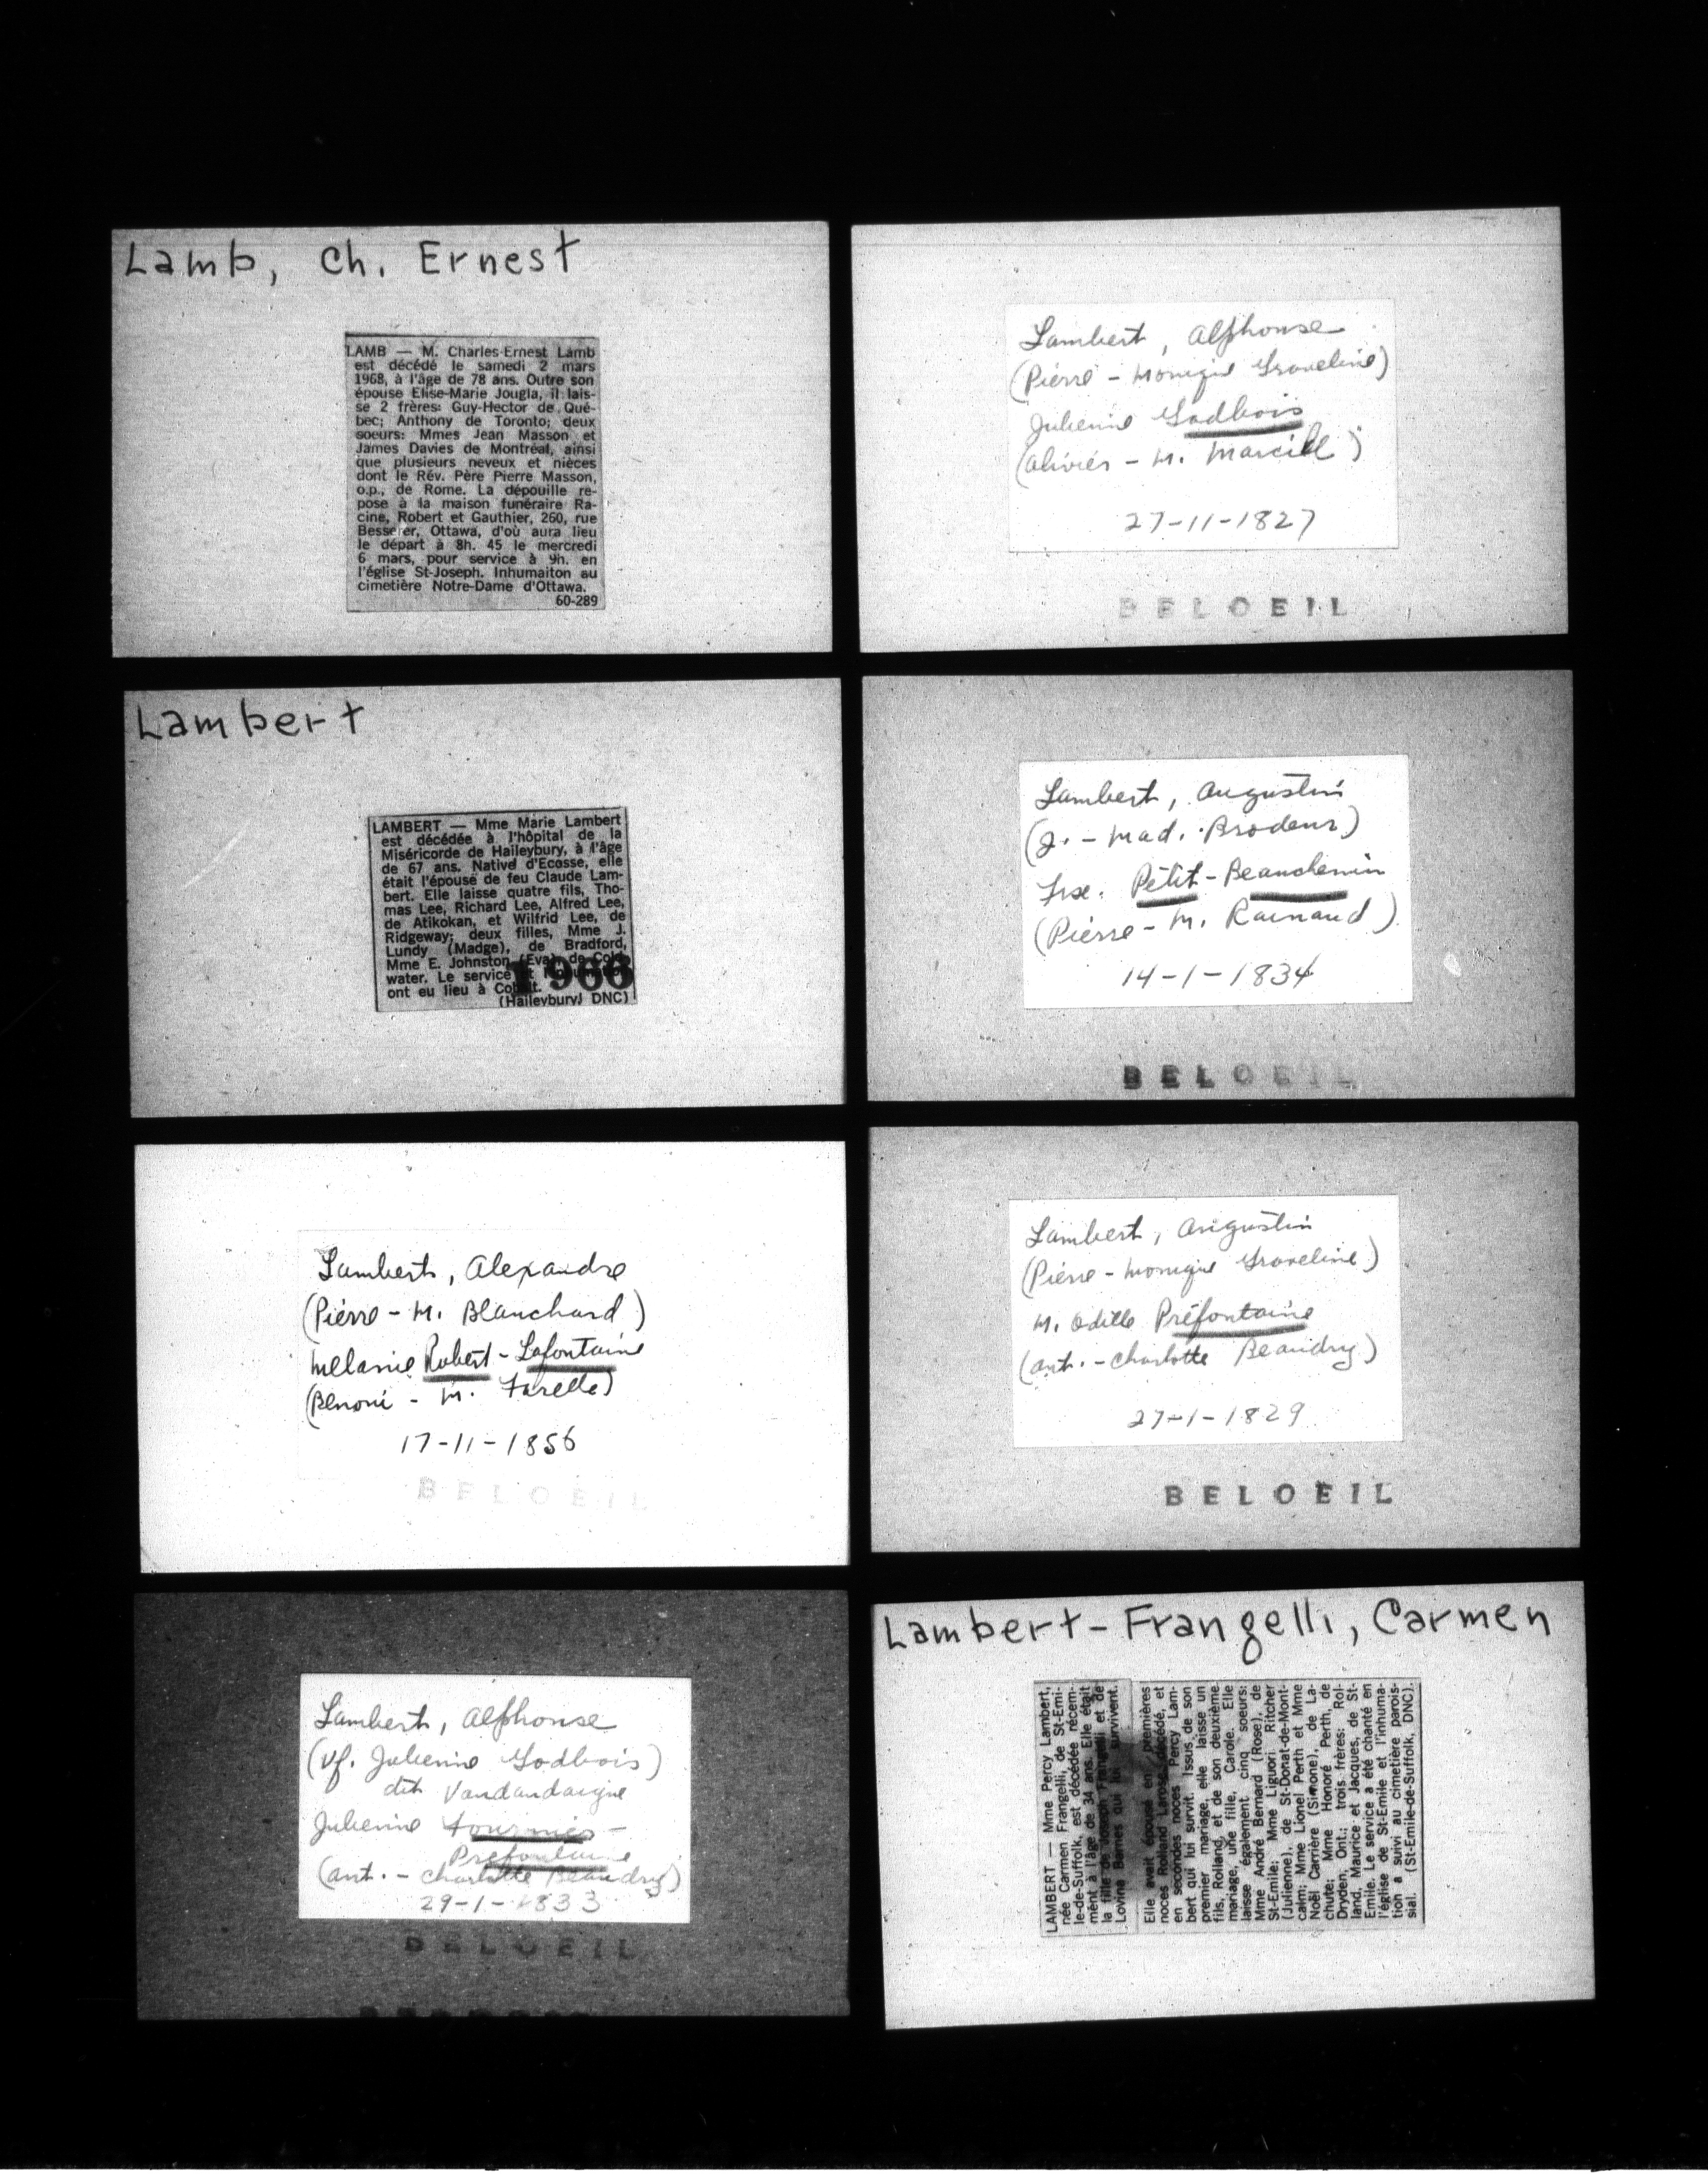 Lamb, Ch. Ernest
LAMB — M. Charles-Ernest Lamb
est décédé le samedi 2 mars
1968, à l'âge de 78 ans. Outre son
épouse Elise-Marie Jougla, il lais-
se 2 frères: Guy-Hector de Qué-
bec; Anthony de Toronto; deux
soeurs: Mmes Jean Masson et
James Davies de Montréal, ainsi
que plusieurs neveux et nièces
dont le Rév. Père Pierre Masson,
o.p., de Rome. La dépouille re-
pose à la maison funéraire Ra-
cine, Robert et Gauthier, 260, rue
Besserer, Ottawa, d'où aura lieu
le départ à 8h. 45 le mercredi
6 mars, pour service à 9h. en
l'église St-Joseph. Inhumaiton au
cimetière Notre-Dame d'Ottawa.
60-289
Lambert
LAMBERT — Mme Marie Lambert
est décédée à l'hôpital de la
Miséricorde de Haileybury, à l'âge
de 67 ans. Native d'Ecosse, elle
était l'épouse de feu Claude Lam-
bert. Elle laisse quatre fils, Tho-
mas Lee, Richard Lee, Alfred Lee,
de Atikokan, et Wilfrid Lee, de
Ridgeway; deux filles, Mme J.
Lundy (Madge), de Bradford,
Mme E. Johnston (Eva), de Cold-
water. Le service et
ont eu lieu à Cobalt.
1966
(Haileybury) DNC)
Lambert, Alexandre
(Pierre - M. Blanchard)
Mélanie Robert - Lafontaine
(Benoni - M. Farelle)
17-11-1856
BELOEIL
Lambert, Alphonse
(Vf. Julienne Godbois)
dit Vandandaigue
Julienne Fournier -
Préfontaine
(Ant. - Charlotte Beaudry)
29-1-1833
BELOEIL
Lambert, Alphonse
(Pierre - Monique Graveline)
Julienne Godbois
(Olivier - M. Marcill)
27-11-1827
BELOEIL
Lambert, Augustin
(J. - Mad. Brodeur)
Frse. Petit - Beauchemin
(Pierre - M. Rainaud)
14-1-1834
BELOEIL
Lambert, Augustin
(Pierre - Monique Graveline)
M. Odille Préfontaine
(Ant. - Charlotte Beaudry)
27-1-1829
BELOEIL
Lambert-Frangelli, Carmen
LAMBERT — Mme Percy Lambert,
née Carmen Frangelli, de St-Emi-
le-de-Suffolk, est décédée récem-
ment à l'âge de 34 ans. Elle était
la fille de Joseph Frangelli et de
Lovina Barnes qui lui survivent.
Elle avait épousé en premières
noces Rolland Larose, décédé, et
en secondes noces Percy Lam-
bert qui lui survit. Issus de son
premier mariage, elle laisse un
fils, Rolland, et de son deuxième
mariage, une fille, Carole. Elle
laisse également cinq soeurs:
Mme André Bernard (Rose), de
St-Emile; Mme Liguori Ritcher
(Julienne), de St-Donat-de-Mont-
calm; Mme Lionel Perth et Mme
Noël Carrière (Simone), de La-
chute; Mme Honoré Perth, de
Dryden, Ont.; trois frères: Rol-
land, Maurice et Jacques, de St-
Emile. Le service a été chanté en
l'église de St-Emile et l'inhuma-
tion a suivi au cimetière parois-
sial. (St-Emile-de-Suffolk, DNC).